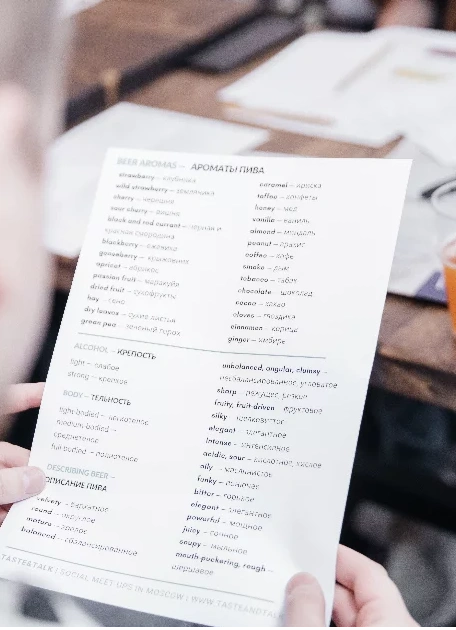 BEER AROMAS – АРОМАТЫ ПИВА
strawberry – клубника
wild strawberry – земляника
cherry – черешня
sour cherry – вишня
black and red currant – чёрная и
красная смородина
blackberry – ежевика
gooseberry – крыжовник
apricot – абрикос
passion fruit – маракуйя
dried fruit – сухофрукты
hay – сено
dry leaves – сухие листья
green pea – зелёный горох
caramel – ириска
toffee – конфеты
honey – мёд
vanilla – ваниль
almond – миндаль
peanut – арахис
coffee – кофе
smoke – дым
tobacco – табак
chocolate – шоколад
cocoa – какао
cloves – гвоздика
cinnamon – корица
ginger – имбирь
ALCOHOL – КРЕПОСТЬ
light – слабое
strong – крепкое
BODY – ТЕЛЬНОСТЬ
light-bodied – легкотелое
medium-bodied –
среднетелое
full-bodied – полнотелое
DESCRIBING BEER –
ОПИСАНИЕ ПИВА
velvety – бархатное
round – округлое
mature – зрелое
balanced – сбалансированное
unbalanced, angular, clumsy –
несбалансированное, угловатое
sharp – режущее, резкое
fruity, fruit-driven – фруктовое
silky – шелковистое
elegant – элегантное
intense – интенсивное
acidic, sour – кислотное, кислое
oily – маслянистое
funky –
bitter – горькое
elegant – элегантное
powerful – мощное
juicy – сочное
soapy – мыльное
mouth-puckering, rough –
шершавое
TASTE&TALK | SOCIAL MEET-UPS IN MOSCOW | WWW.TASTEANDTAL